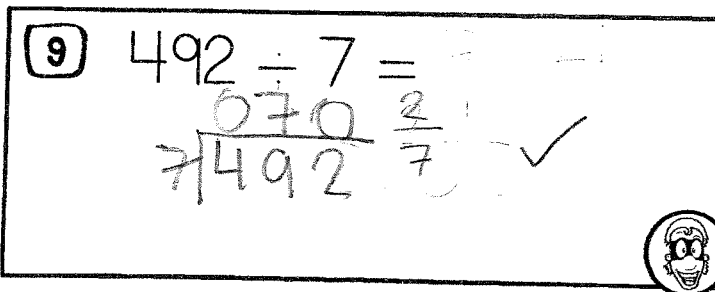 9 492 ÷ 7 =
070 2/7
7 492